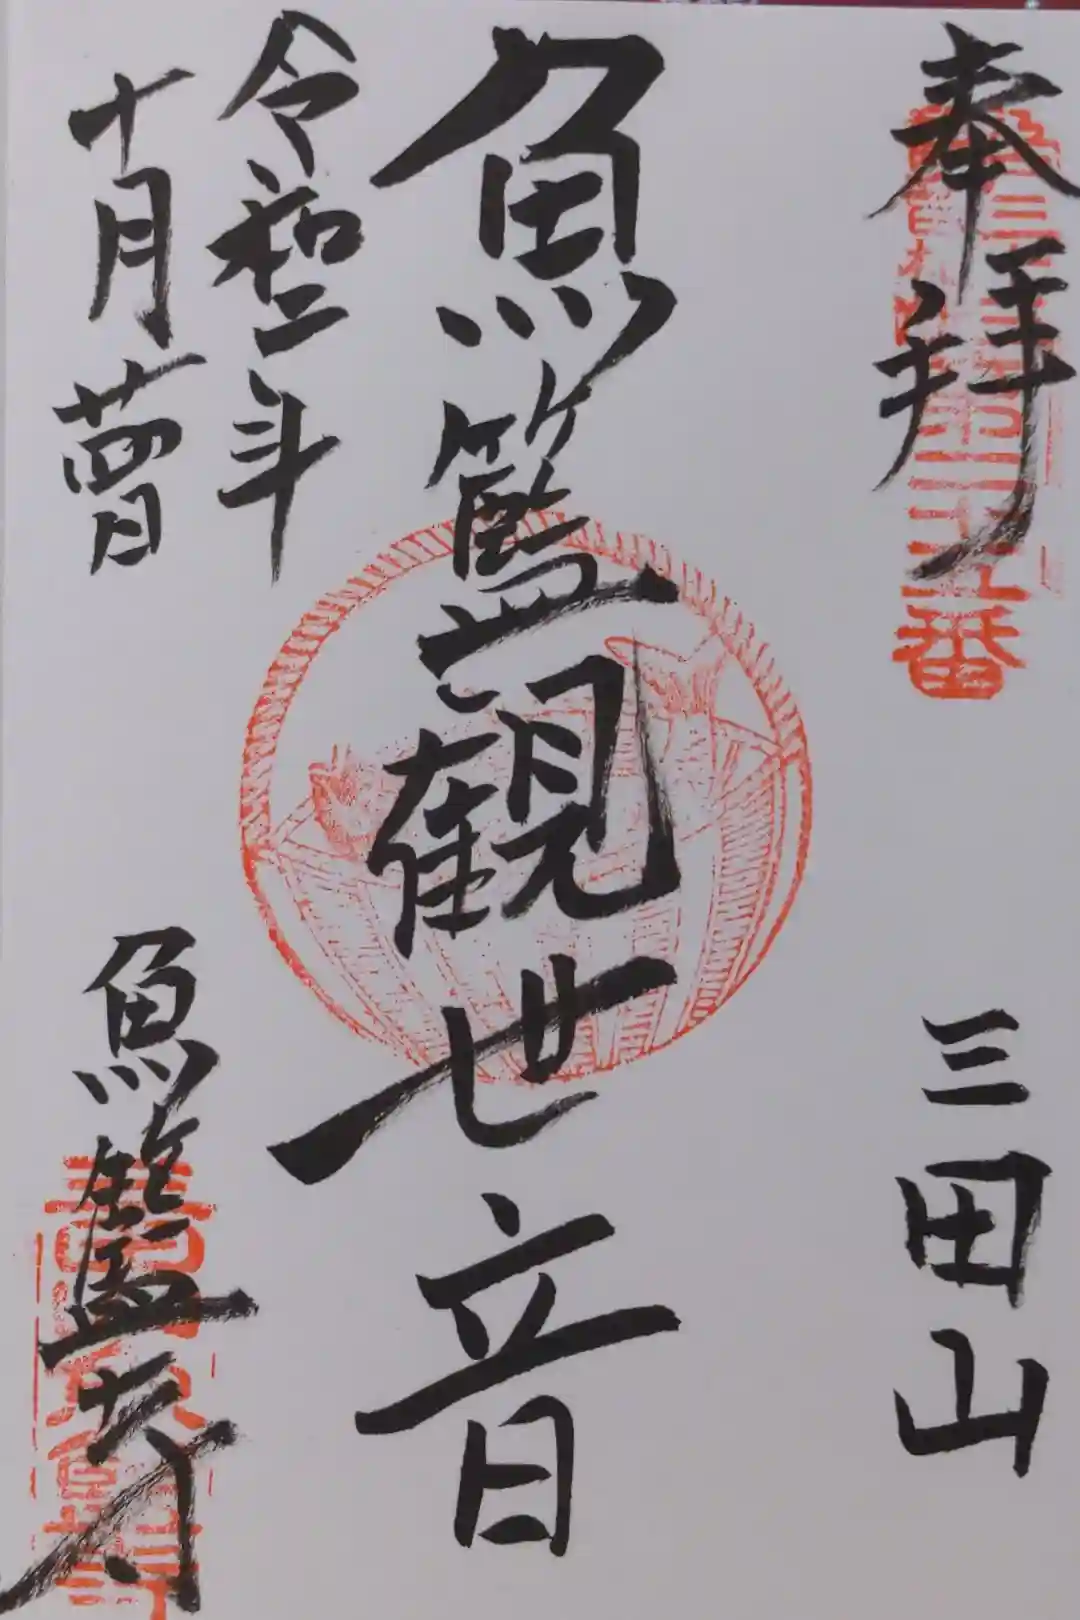 奉拝
三田山
魚籃観世音
令和二年
十月
魚籃寺
二十五番